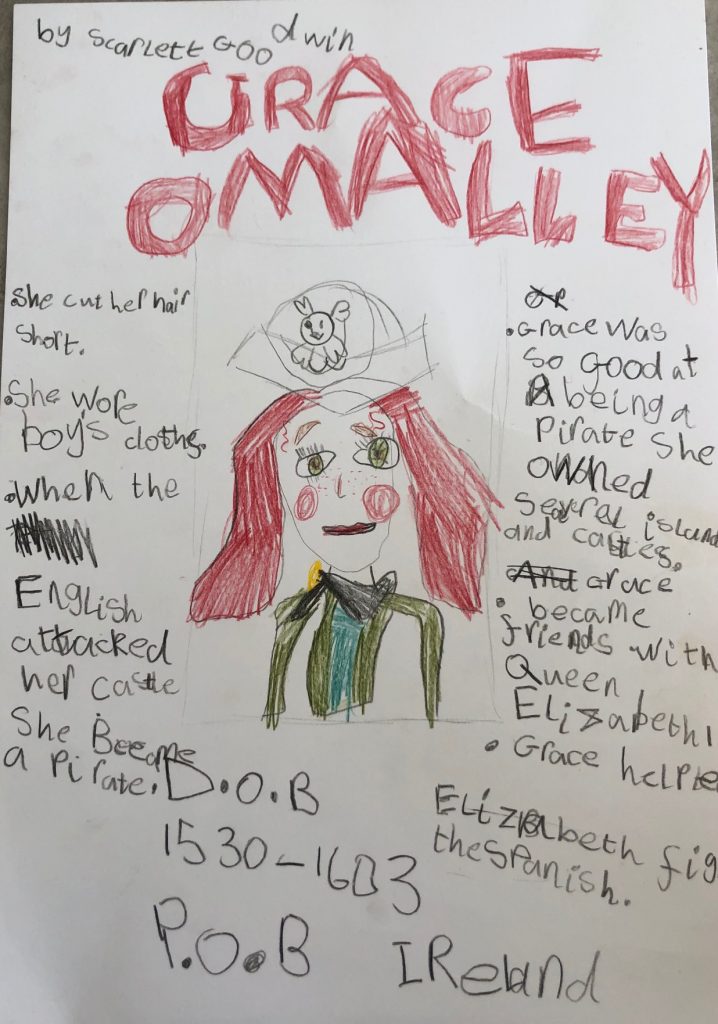 by Scarlett Goodwin
GRACE
OMALLEY
•She cut her hair
short.
•She wore
boy's clothes.
•When the
English
attacked
her castle
She Became
a Pirate.
OR
•Grace was
so good at
being a
Pirate She
owned
several island
and castles.
And Grace
• became
friends with
Queen
Elizabeth I
• Grace helpte
Elizabeth fig
the Spanish.
D.O.B
1530-1603
P.O.B
IReland